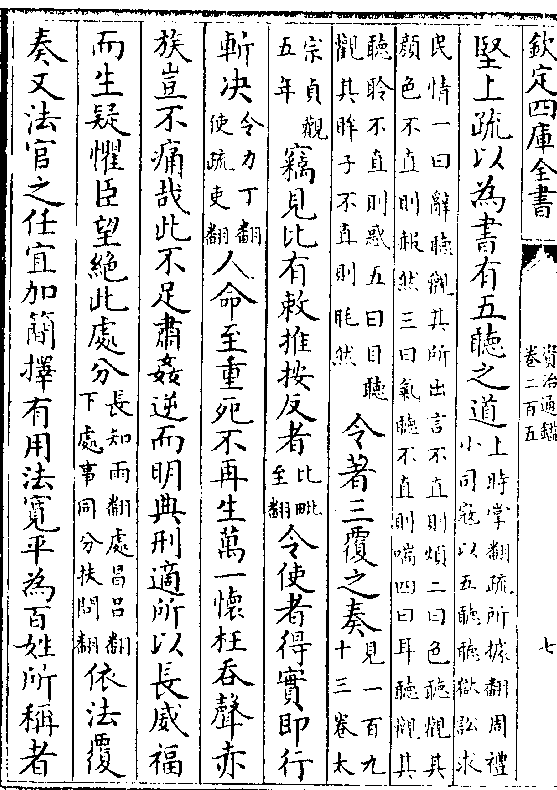 欽定四庫全書
資治通鑑
卷二百五
七
堅上疏以為書有五聽之道上時掌翻疏所據翻周禮
小司寇以五聽聽獄訟求
民情一曰辭聽觀其所出言不直則煩二曰色聽觀其
顔色不直則赧然三曰氣聽不直則喘四曰耳聽觀其
聽聆不直則惑五曰目聽
觀其眸子不直則眊然
令著三覆之奏見一百九
十三卷太
宗貞觀
五年
竊見比有敕推按反者比毗
至翻
令使者得實即行
斬决令力丁翻
使疏吏翻
人命至重死不再生萬一懷枉吞聲赤
族豈不痛哉此不足肅姦逆而明典刑適所以長威福
而生疑懼臣望絶此處分長知兩翻處昌呂翻
下處事同分扶問翻
依法覆
奏又法官之任宜加簡擇有用法寛平為百姓所稱者